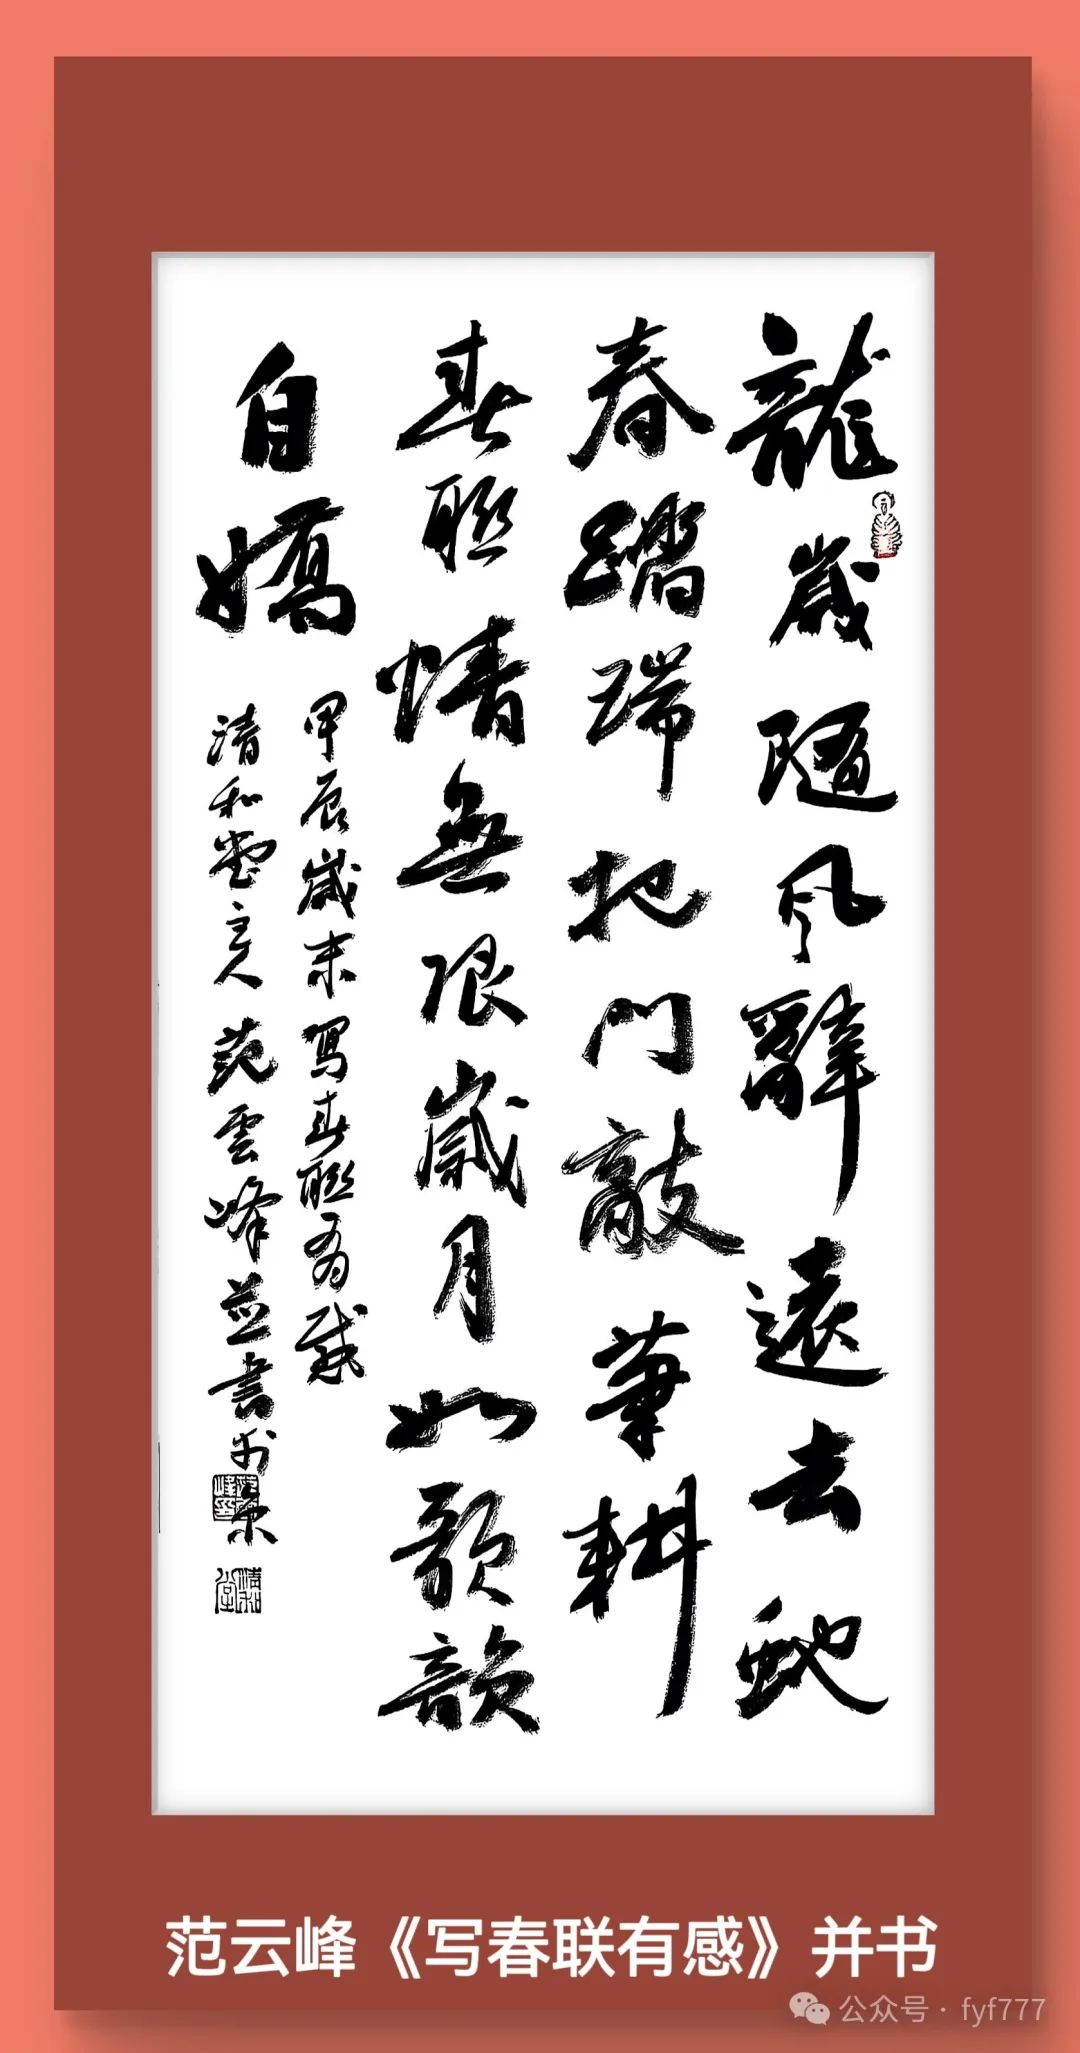 龍歲隨风辭遠去蛇
春踏瑞把門敲筆耕
春聯情無限歲月如歌韻
自嬌
甲辰歲末寫春聯有感
清和堂主人范雲峰並書於京
范云峰《写春联有感》并书
公众号·fyf777